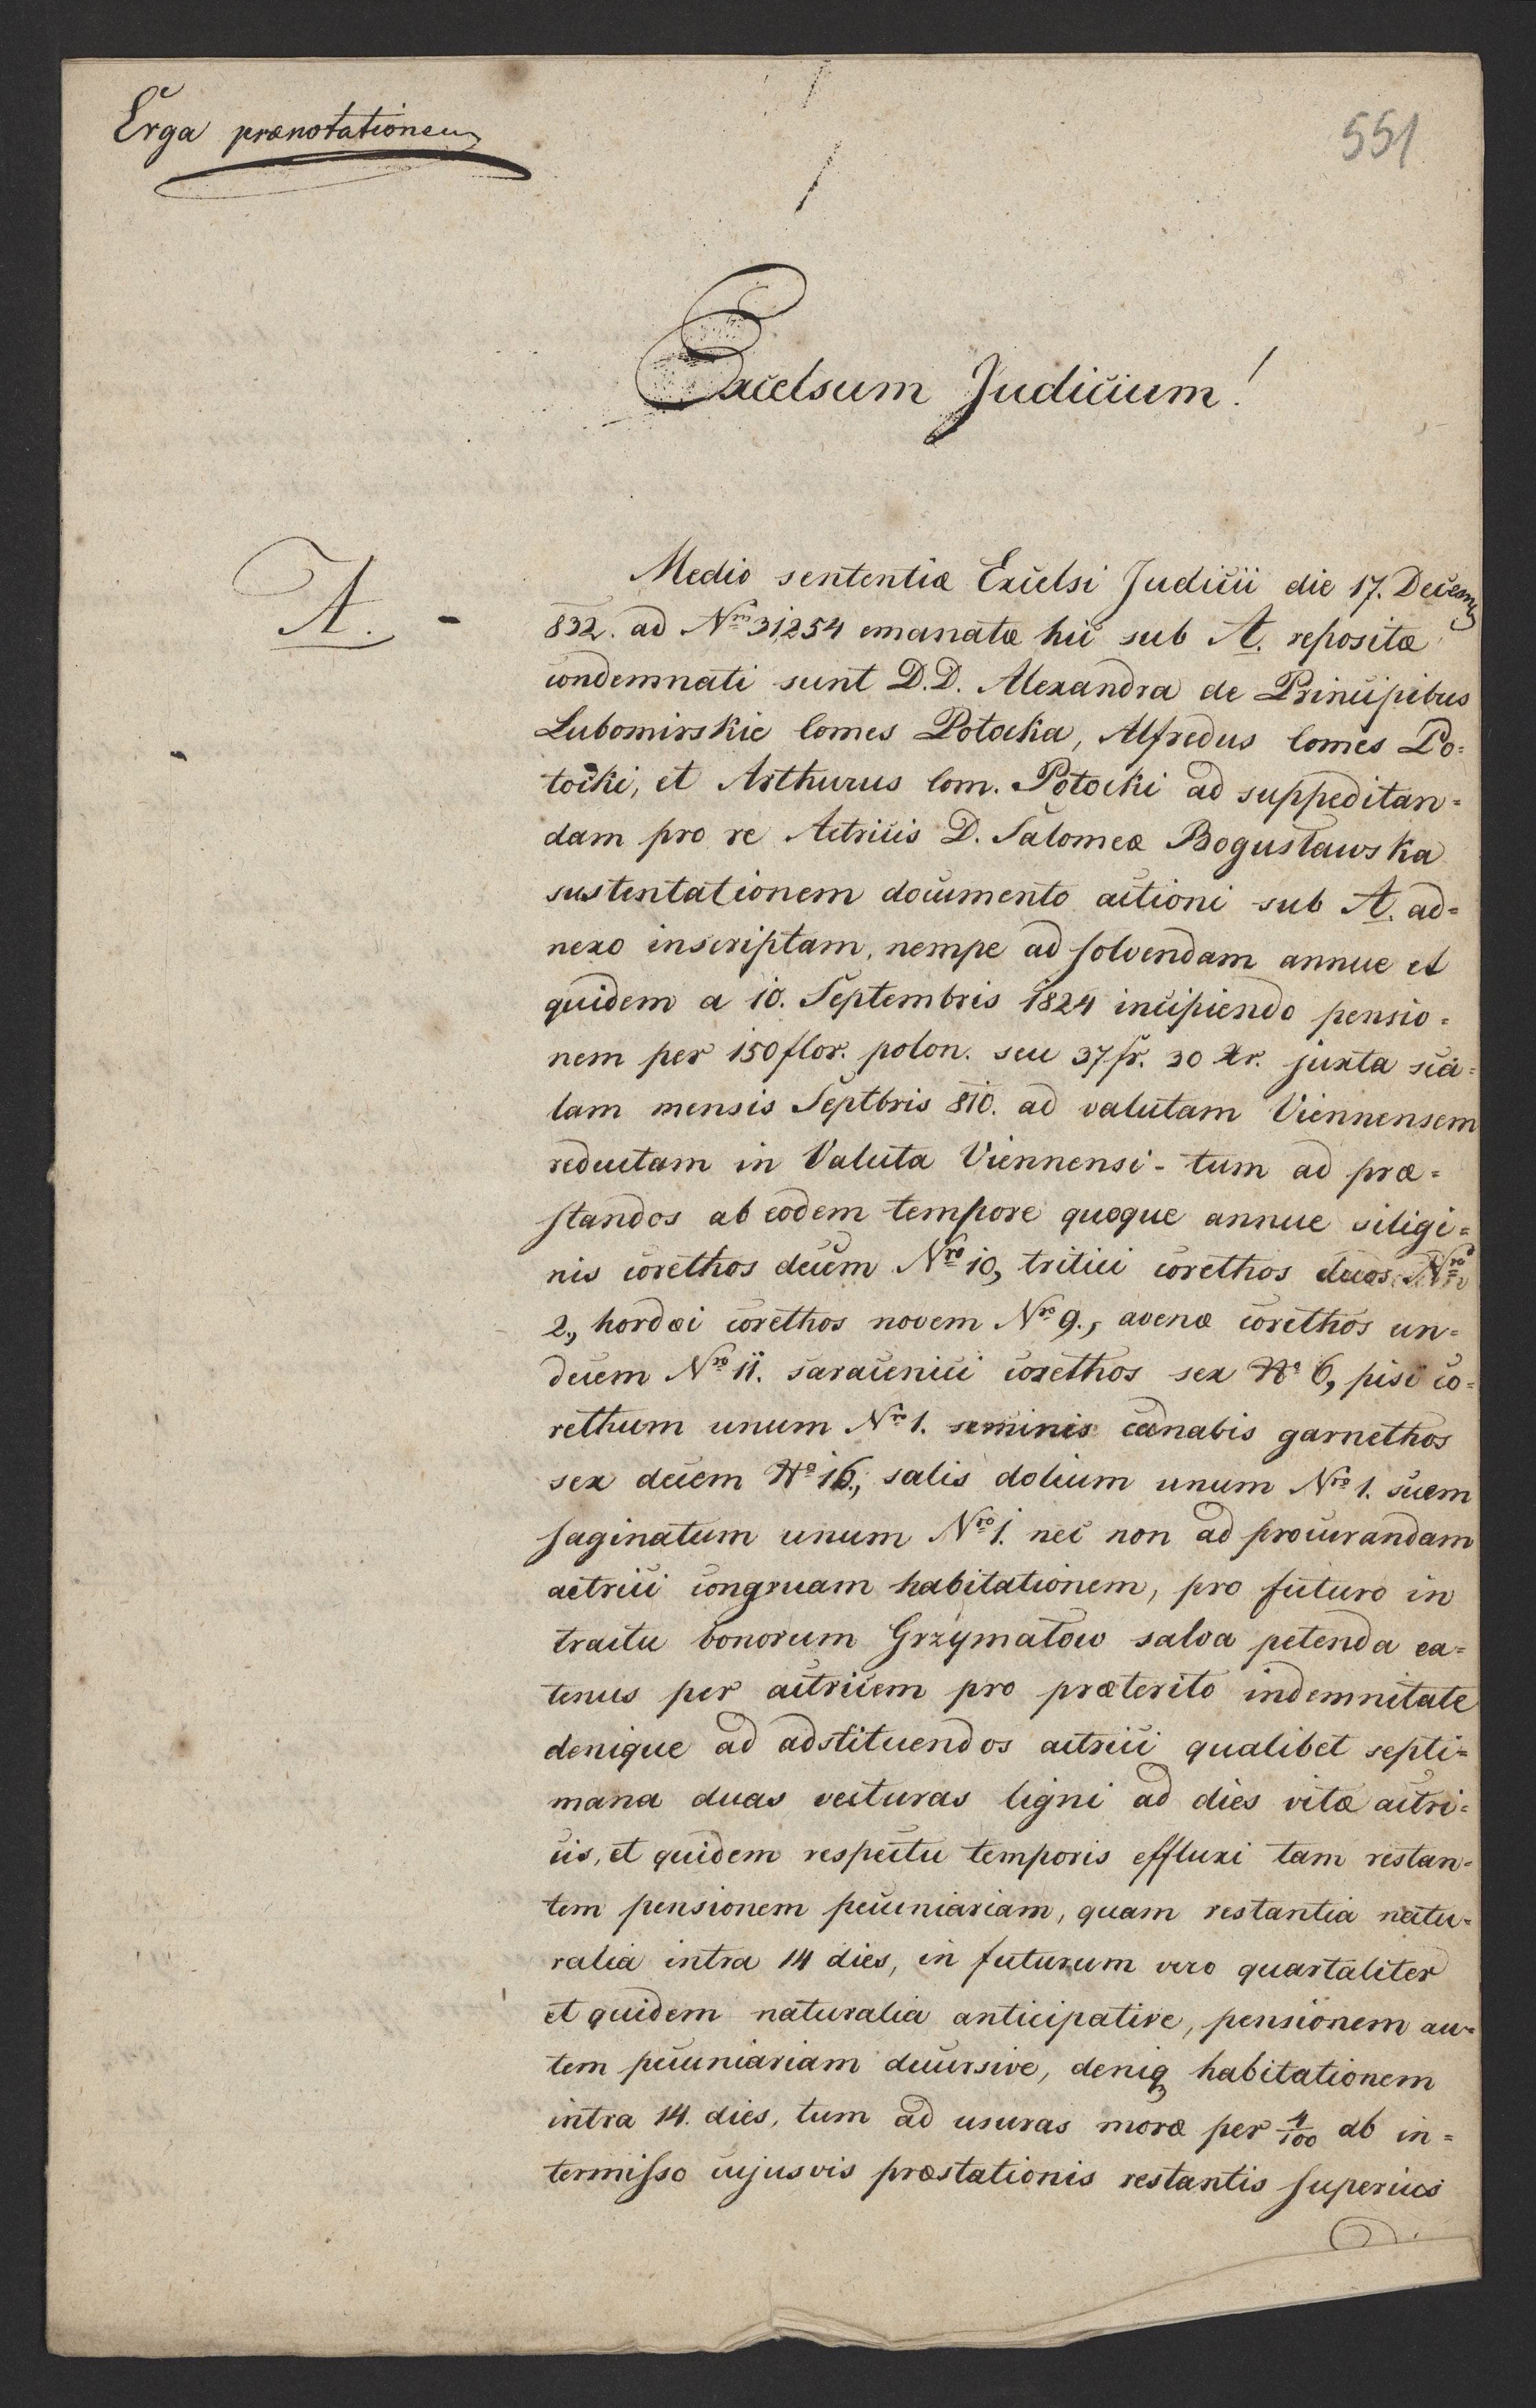 Erga prænotationem
551
Excelsum Judicium!
A.
Medio sententiæ Excelsi Judicii die 17. Decem
832. ad Nrm 31254 emanatæ hic sub A. repositæ
condemnati sunt D.D. Alexandra de Principibus
Lubomirskie Comes Potocka, Alfredus Comes Po=
tocki, et Arthurus Com. Potocki ad suppeditan=
dam pro re Actricis D. Salomeæ Bogusławska
sustentationem documento actioni sub A. ad=
nexo inscriptam, nempe ad solvendam annue et
quidem a 10. Septembris 1824 incipiendo pensio=
nem per 150 flor. polon. seu 37 fr. 30 Xr. juxta sca=
lam mensis Septbris 810. ad valutam Viennensem
reductam in Valuta Viennensi - tum ad præ=
standos ab eodem tempore quoque annue siligi=
nis corethos decem Nro 10, tritici corethos duos Nro
2., hordei corethos novem Nro 9., avenæ corethos un=
decem Nro 11. saracenici corethos sex No 6, pisi co=
rethum unum Nro 1. seminis canabis garnethos
sex decem No 16., salis dolium unum Nro 1. suem
saginatum unum Nro 1. nec non ad procurandam
actrici congruam habitationem, pro futuro in
tractu bonorum Grzymałow salva petenda ea=
tenus per actricem pro præterito indemnitate
denique ad adstituendos actrici qualibet septi=
mana duas vecturas ligni ad dies vitæ actri=
cis, et quidem respectu temporis effluxi tam restan=
tem pensionem pecuniariam, quam restantia natu=
ralia intra 14 dies, in futurum vero quartaliter
et quidem naturalia anticipative, pensionem au=
tem pecuniariam decursive, deniq habitationem
intra 14. dies, tum ad usuras moræ per 4/100 ab in=
termisso cujusvis præstationis restantis superius